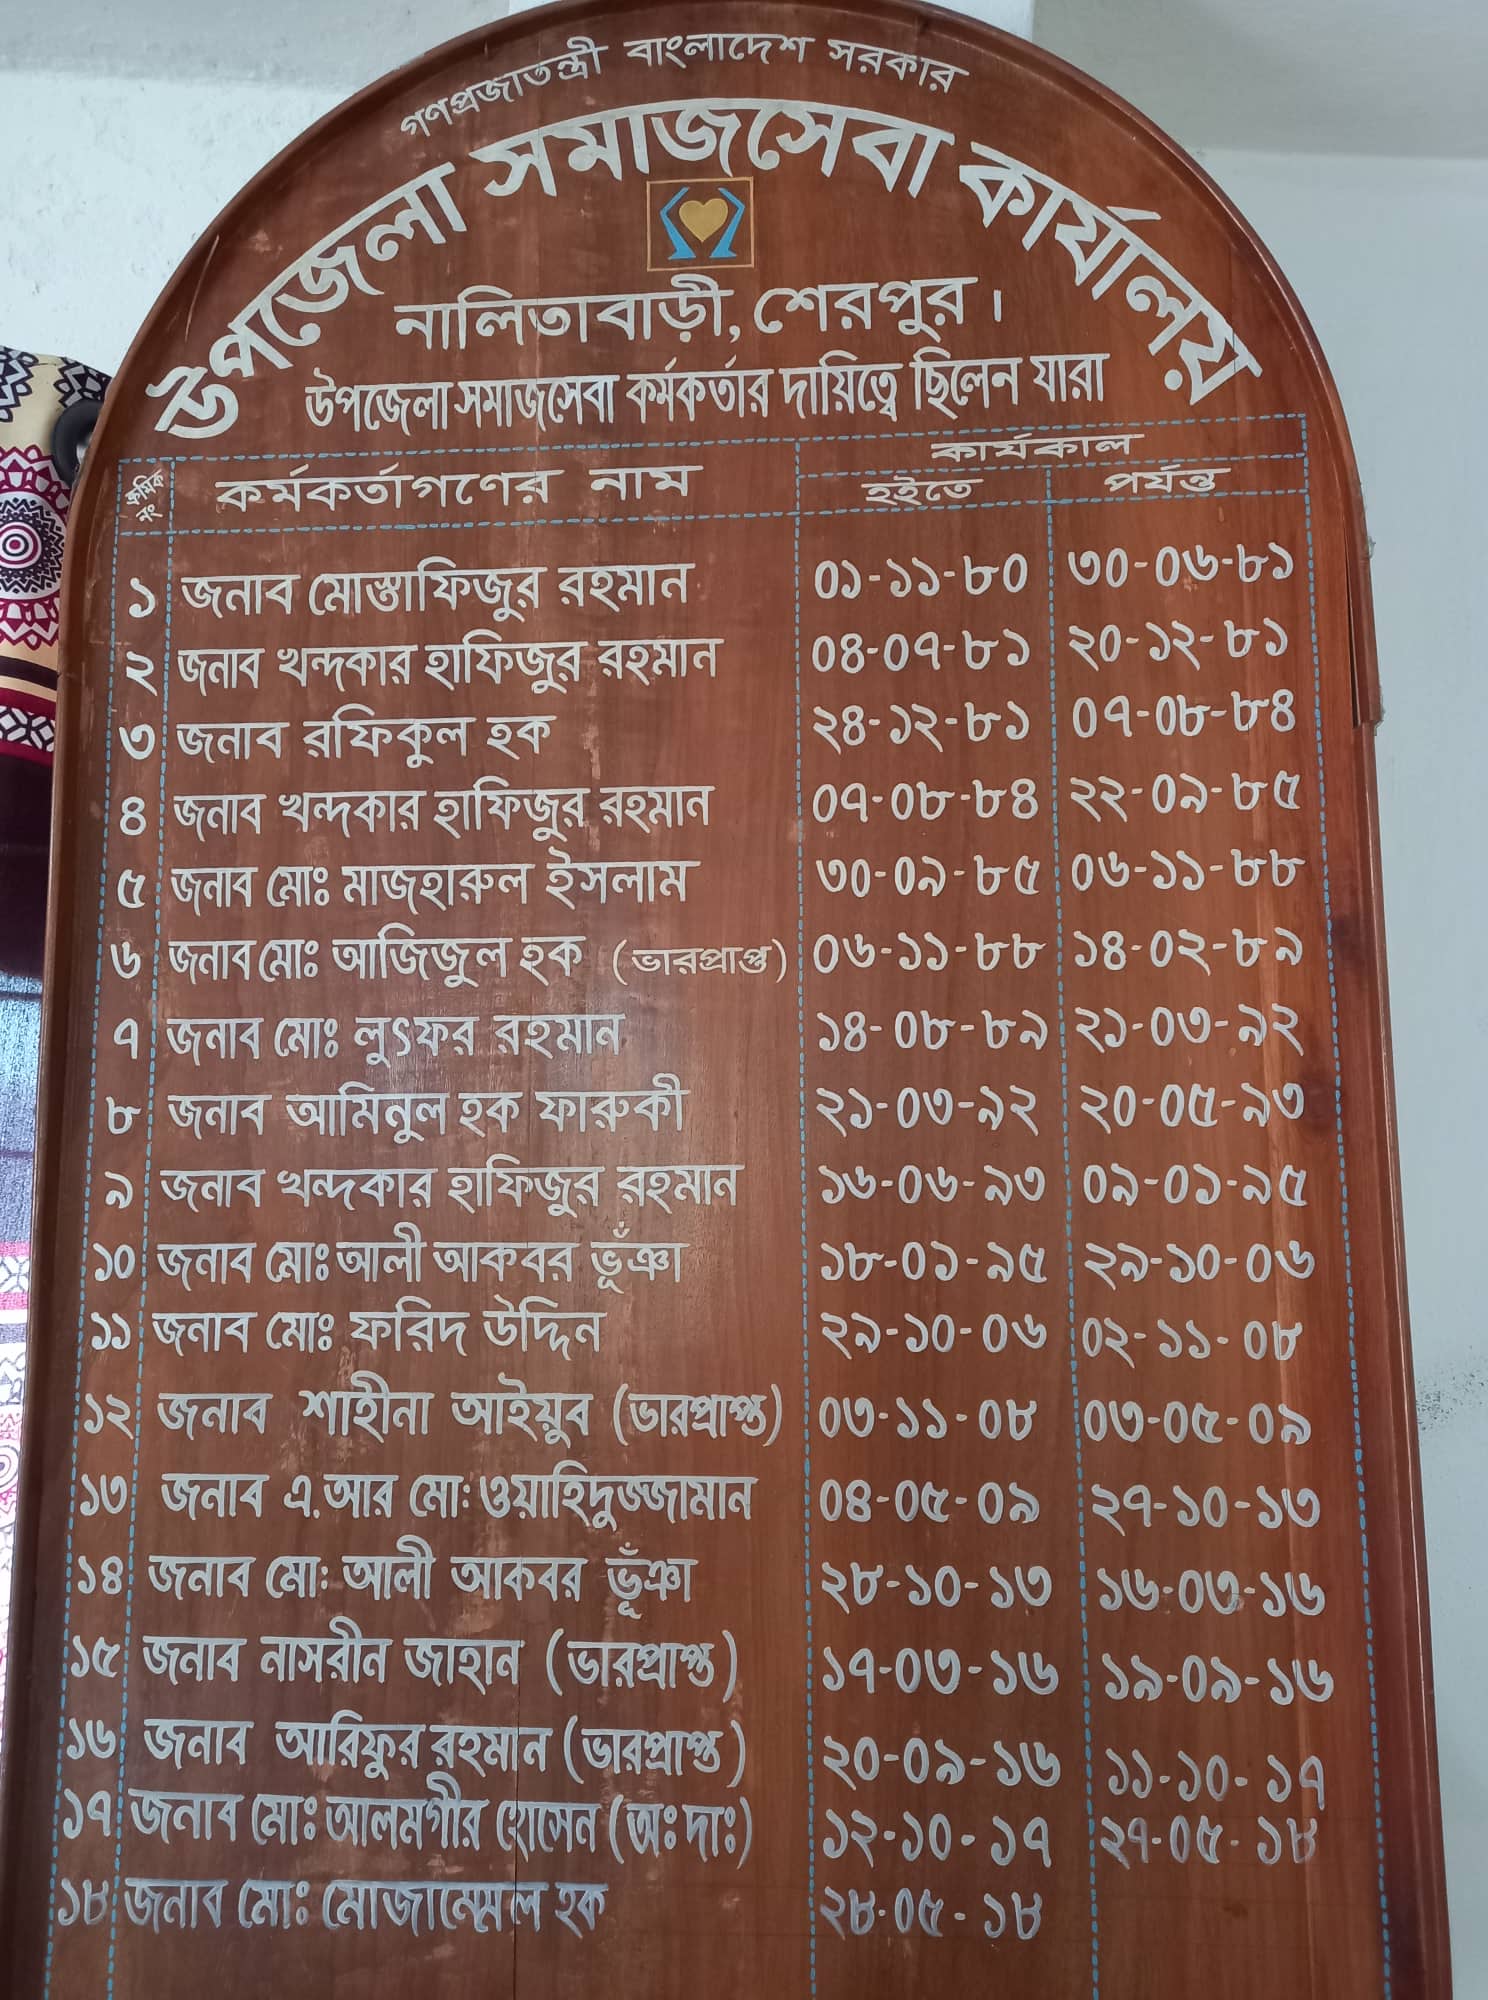 গণপ্রজাতন্ত্রী বাংলাদেশ সরকার
উপজেলা সমাজসেবা কার্যালয়
নালিতাবাড়ী, শেরপুর।
উপজেলা সমাজসেবা কর্মকর্তার দায়িত্বে ছিলেন যারা
ক্রমিক নং কর্মকর্তাগণের নাম কার্যকাল
হইতে পর্যন্ত
১ জনাব মোস্তাফিজুর রহমান ০১-১১-৮০ ৩০-০৬-৮১
২ জনাব খন্দকার হাফিজুর রহমান ০৪-০৭-৮১ ২০-১২-৮১
৩ জনাব রফিকুল হক ২৪-১২-৮১ ০৭-০৮-৮৪
৪ জনাব খন্দকার হাফিজুর রহমান ০৭-০৮-৮৪ ২২-০৯-৮৫
৫ জনাব মোঃ মাজহারুল ইসলাম ৩০-০৯-৮৫ ০৬-১১-৮৮
৬ জনাব মোঃ আজিজুল হক (ভারপ্রাপ্ত) ০৬-১১-৮৮ ১৪-০২-৮৯
৭ জনাব মোঃ লুৎফর রহমান ১৪-০৮-৮৯ ২১-০৩-৯২
৮ জনাব আমিনুল হক ফারুকী ২১-০৩-৯২ ২০-০৫-৯৩
৯ জনাব খন্দকার হাফিজুর রহমান ১৬-০৬-৯৩ ০৯-০১-৯৫
১০ জনাব মোঃ আলী আকবর ভূঁঞা ১৮-০১-৯৫ ২৯-১০-০৬
১১ জনাব মোঃ ফরিদ উদ্দিন ২৯-১০-০৬ ০২-১১-০৮
১২ জনাব শাহীনা আইয়ুব (ভারপ্রাপ্ত) ০৩-১১-০৮ ০৩-০৫-০৯
১৩ জনাব এ.আর মো: ওয়াহিদুজ্জামান ০৪-০৫-০৯ ২৭-১০-১৩
১৪ জনাব মো: আলী আকবর ভূঁঞা ২৮-১০-১৩ ১৬-০৩-১৬
১৫ জনাব নাসরীন জাহান (ভারপ্রাপ্ত) ১৭-০৩-১৬ ১৯-০৯-১৬
১৬ জনাব আরিফুর রহমান (ভারপ্রাপ্ত) ২০-০৯-১৬ ১১-১০-১৭
১৭ জনাব মোঃ আলমগীর হোসেন (অঃ দাঃ) ১২-১০-১৭ ২৭-০৫-১৮
১৮ জনাব মোঃ মোজাম্মেল হক ২৮-০৫-১৮